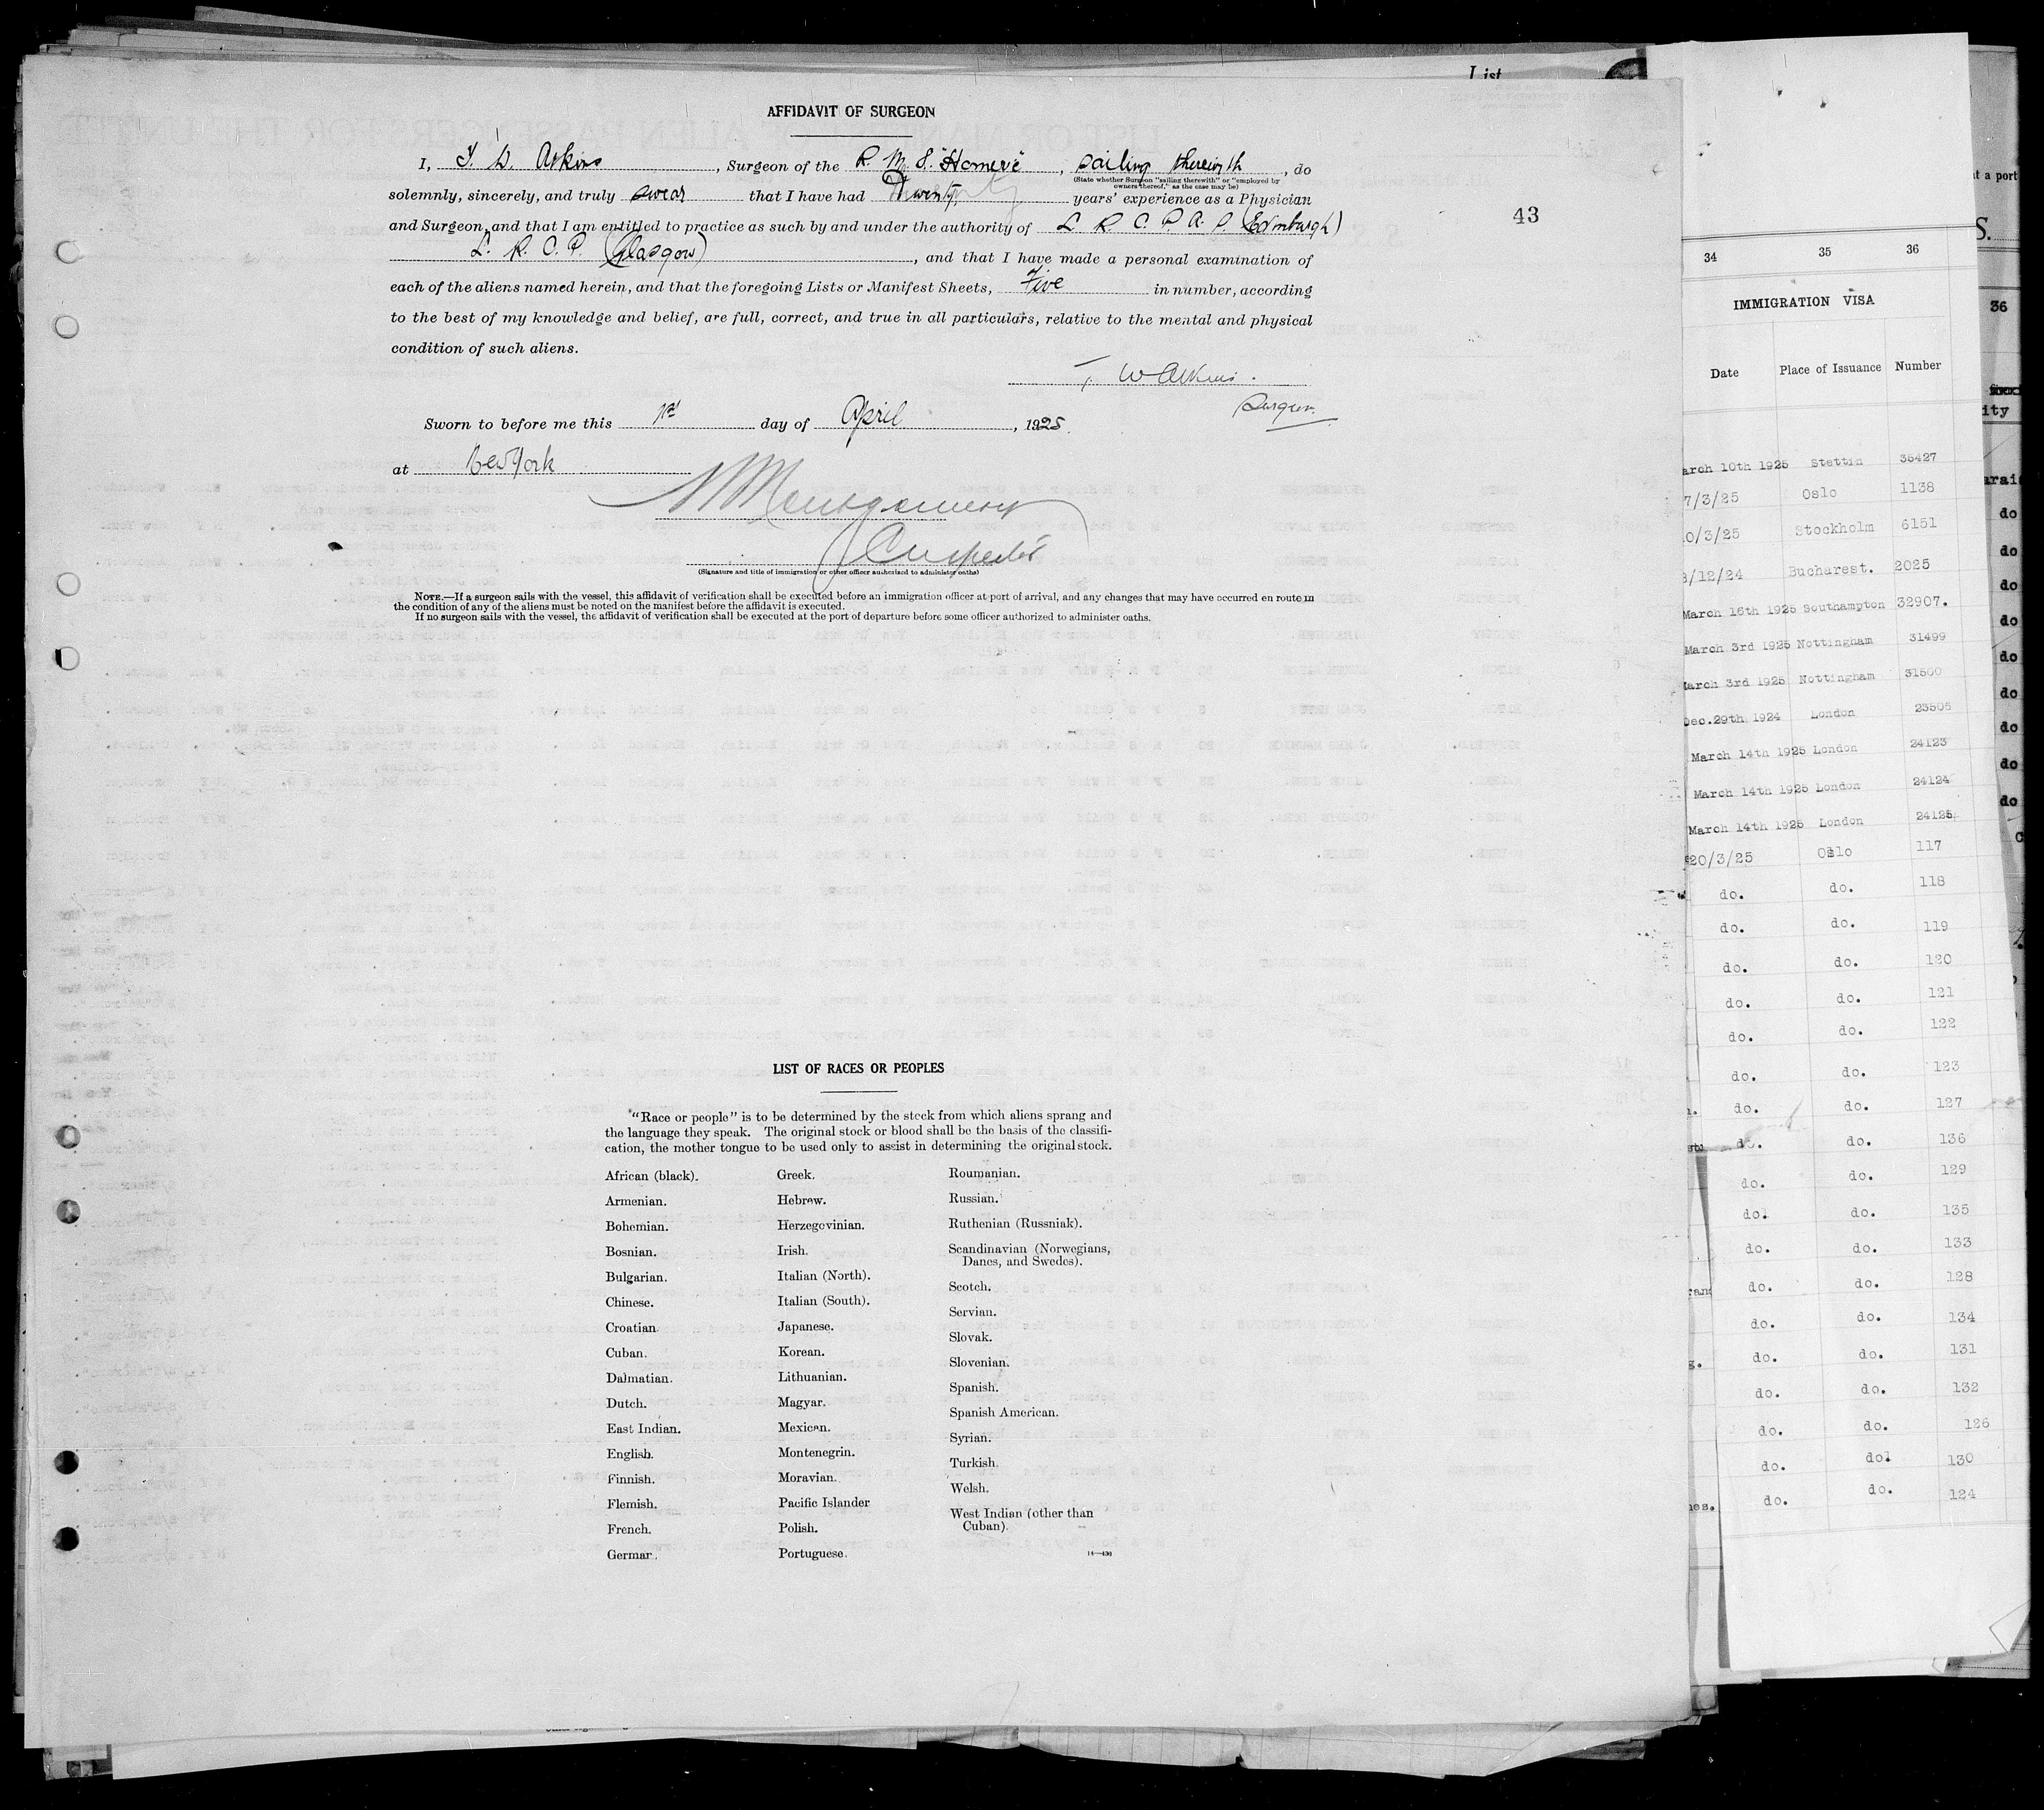 List
AFFIDAVIT OF SURGEON
I, T. W. Atkins, Surgeon of the R. M. S. "Homeric", sailing therewith, do
(State whether Surgeon "sailing therewith" or "employed by
owners thereof," as the case may be)
solemnly, sincerely, and truly swear that I have had Twenty years' experience as a Physician
and Surgeon, and that I am entitled to practice as such by and under the authority of L R C P & S (Edinburgh)
L. R. C. P. (Glasgow), and that I have made a personal examination of
each of the aliens named herein, and that the foregoing Lists or Manifest Sheets, Five in number, according
to the best of my knowledge and belief, are full, correct, and true in all particulars, relative to the mental and physical
condition of such aliens.
T W Atkins.
Surgeon.
Sworn to before me this 1st day of April, 1925.
at New York
Montgomery
Inspector
(Signature and title of immigration or other officer authorized to administer oaths)
NOTE.—If a surgeon sails with the vessel, this affidavit of verification shall be executed before an immigration officer at port of arrival, and any changes that may have occurred en route in
the condition of any of the aliens must be noted on the manifest before the affidavit is executed.
If no surgeon sails with the vessel, the affidavit of verification shall be executed at the port of departure before some officer authorized to administer oaths.
43
LIST OF RACES OR PEOPLES
"Race or people" is to be determined by the stock from which aliens sprang and
the language they speak. The original stock or blood shall be the basis of the classifi-
cation, the mother tongue to be used only to assist in determining the original stock.
African (black).
Armenian.
Bohemian.
Bosnian.
Bulgarian.
Chinese.
Croatian.
Cuban.
Dalmatian.
Dutch.
East Indian.
English.
Finnish.
Flemish.
French.
German.
Greek.
Hebrew.
Herzegovinian.
Irish.
Italian (North).
Italian (South).
Japanese.
Korean.
Lithuanian.
Magyar.
Mexican.
Montenegrin.
Moravian.
Pacific Islander
Polish.
Portuguese.
Roumanian.
Russian.
Ruthenian (Russniak).
Scandinavian (Norwegians,
Danes, and Swedes).
Scotch.
Servian.
Slovak.
Slovenian.
Spanish.
Spanish American.
Syrian.
Turkish.
Welsh.
West Indian (other than
Cuban).
14—430
34 35 36
IMMIGRATION VISA
Date Place of Issuance Number
arch 10th 1925 Stettin 35427
7/3/25 Oslo 1138
0/3/25 Stockholm 6151
/12/24 Bucharest. 2025
March 16th 1925 Southampton 32907.
March 3rd 1925 Nottingham 31499
March 3rd 1925 Nottingham 31500
Dec.29th 1924 London 23505
March 14th 1925 London 24123
March 14th 1925 London 24124
March 14th 1925 London 24125
20/3/25 Oslo 117
do. do. 118
do. do. 119
do. do. 120
do. do. 121
do. do. 122
do. do. 123
do. do. 127
do. do. 136
do. do. 129
do. do. 135
do. do. 133
do. do. 128
do. do. 134
do. do. 131
do. do. 132
do. do. 126
do. do. 130
do. do. 124
at a port
S.
36
ity
do
do
do
do
do
do
do
do
do